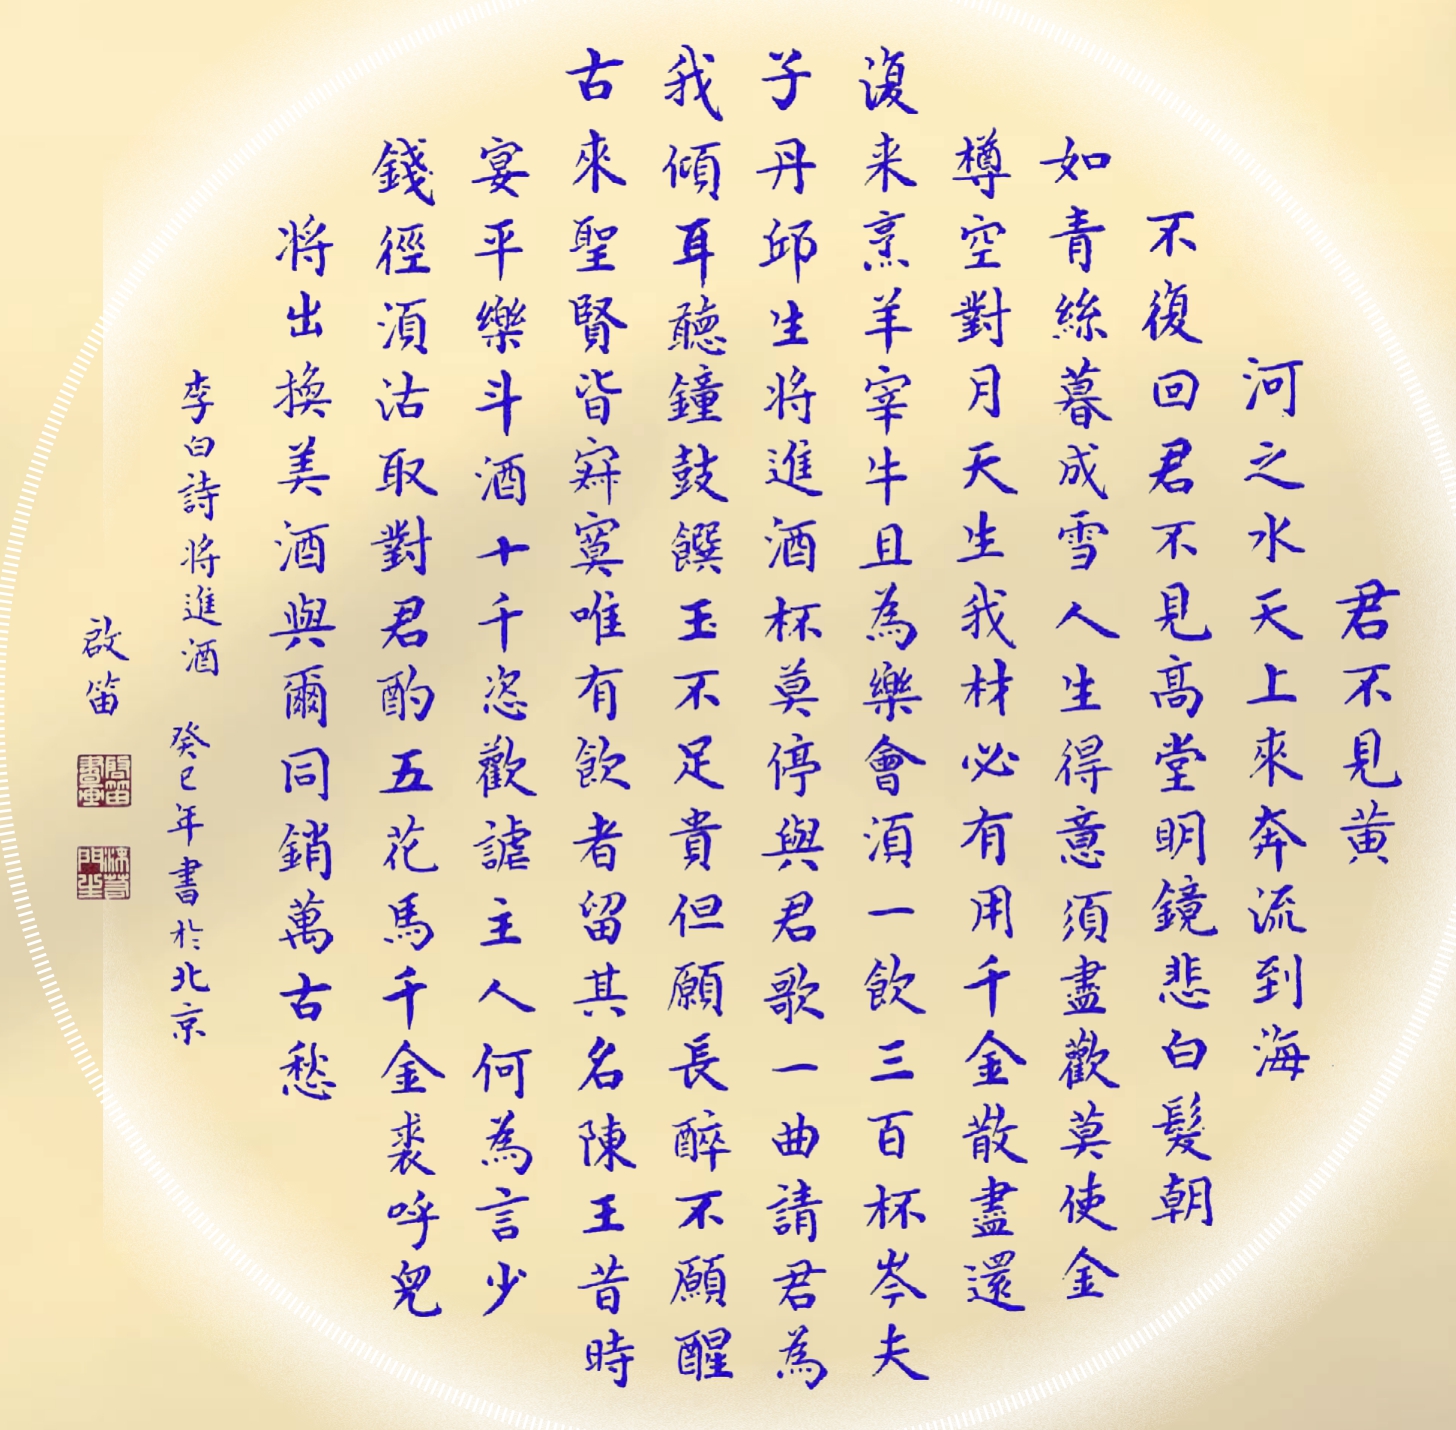 君不見黄
河之水天上來奔流到海
不復回君不見高堂明鏡悲白髮朝
如青絲暮成雪人生得意須盡歡莫使金
樽空對月天生我材必有用千金散盡還
復来烹羊宰牛且為樂會湏一飲三百杯岑夫
子丹邱生将進酒杯莫停與君歌一曲請君為
我傾耳聽鐘鼓饌玉不足貴但願長醉不願醒
古來聖賢皆寂寞唯有飲者留其名陳王昔時
宴平樂斗酒十千恣歡謔主人何為言少
錢徑湏沽取對君酌五花馬千金裘呼兒
将出換美酒與爾同銷萬古愁
李白詩将進酒 癸巳年書於北京
啟笛